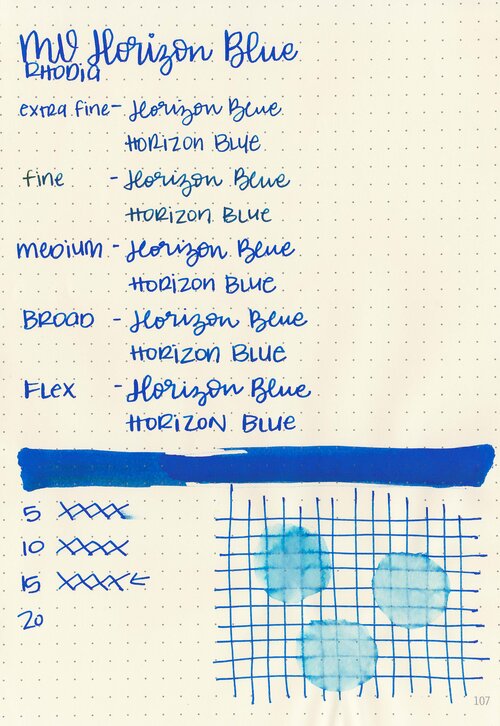 MV Horizon Blue
RHODIA
extra fine - Horizon Blue
HORIZON BLUE
fine - Horizon Blue
HORIZON BLUE
medium - Horizon Blue
HORIZON BLUE
BROAD - Horizon Blue
HORIZON BLUE
FLEX - Horizon Blue
HORIZON BLUE
5 XXXX
10 XXXX
15 XXXX ←
20
107